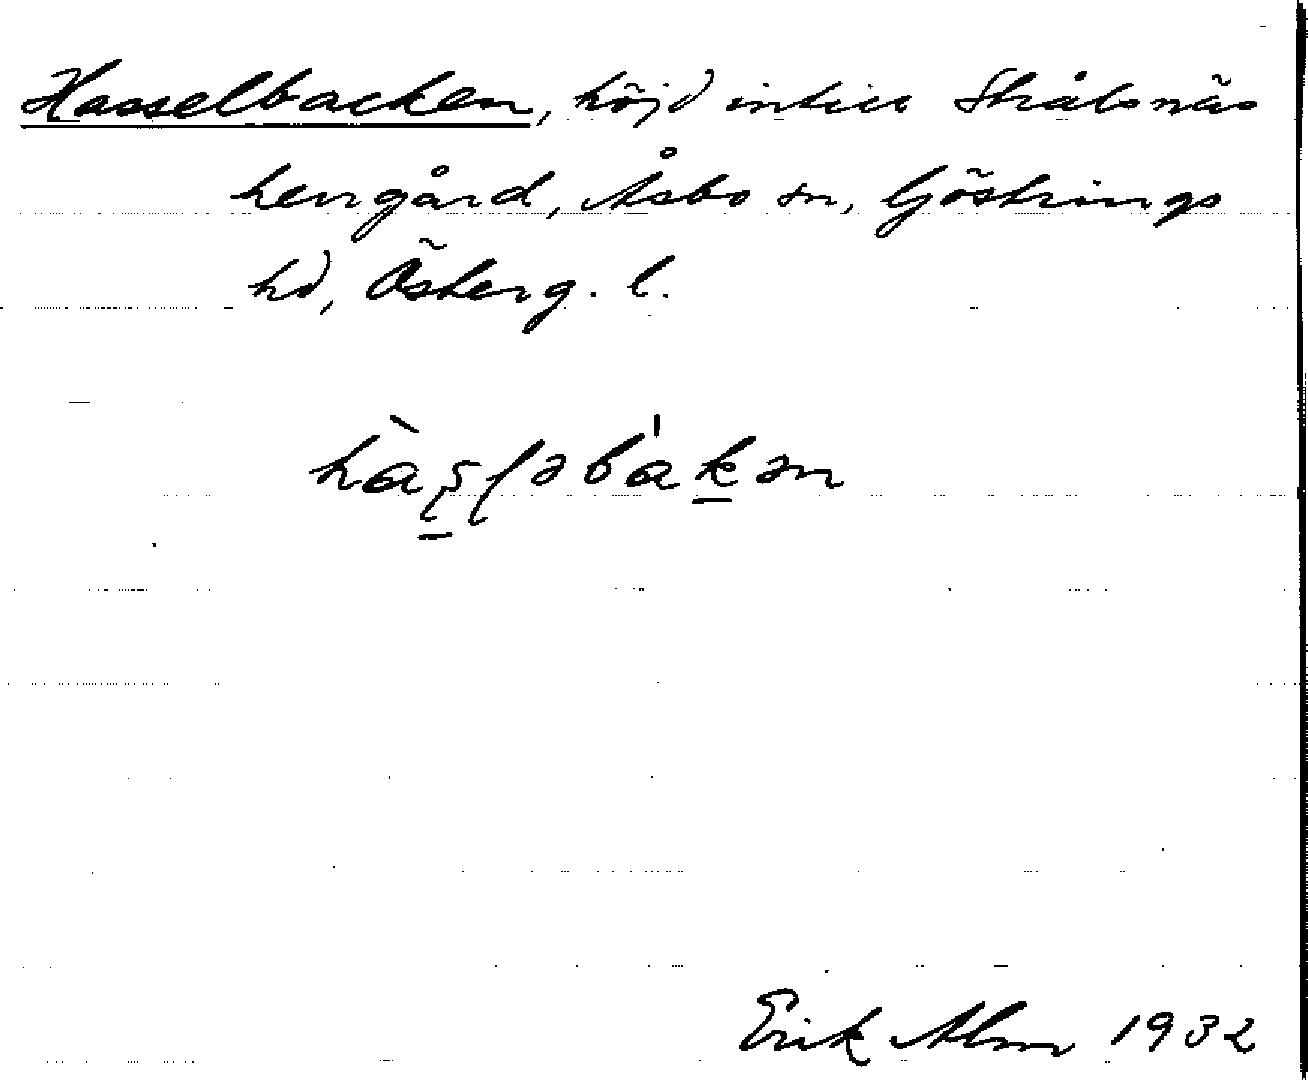 Hasselbacken, höjd intill Strålsnäs
herrgård, Åsbo sn, Göstrings
hd, Österg. l.
hàs̠ləbákən
Erik Alm 1932